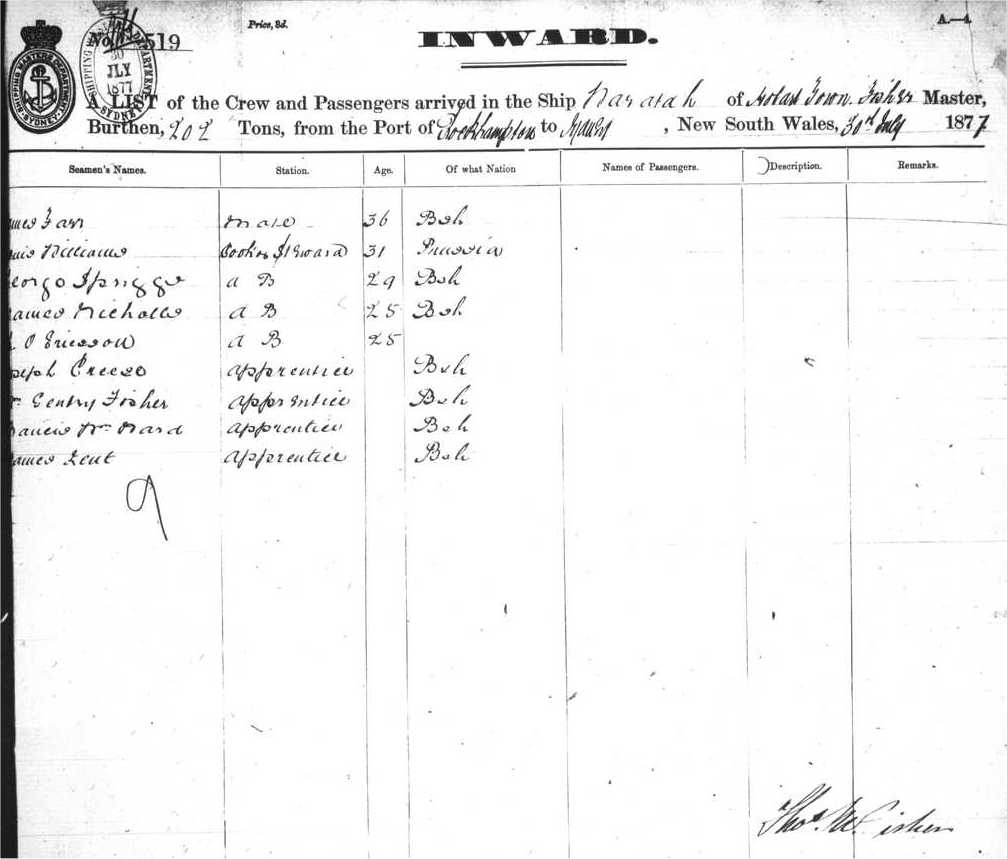 Price, 3d.
A.—4.
No. 519
SHIPPING MASTERS DEPARTMENT SYDNEY
SHIPPING MASTERS DEPARTMENT
30
JLY
1877
SYDNEY
INWARD.
A LIST of the Crew and Passengers arrived in the Ship of Hobart Town. Fisher Master,
Burthen, 202 Tons, from the Port of Rockhampton to Sydney, New South Wales, 30th July 1877
Seamen's Names. Station. Age. Of what Nation Names of Passengers. Description. Remarks.
ames Farr Mate 36 Bsh
Williams Cook & Steward 31 Prussia
eorge Spriggs A B 29 Bsh
ames Nicholls A B 25 Bsh
O Ericsson A B 25
oseph Creese apprentice Bsh
Gentry Fisher apprentice Bsh
rancis Wm Ward apprentice Bsh
ames Kent apprentice Bsh
9
Thos M Fisher